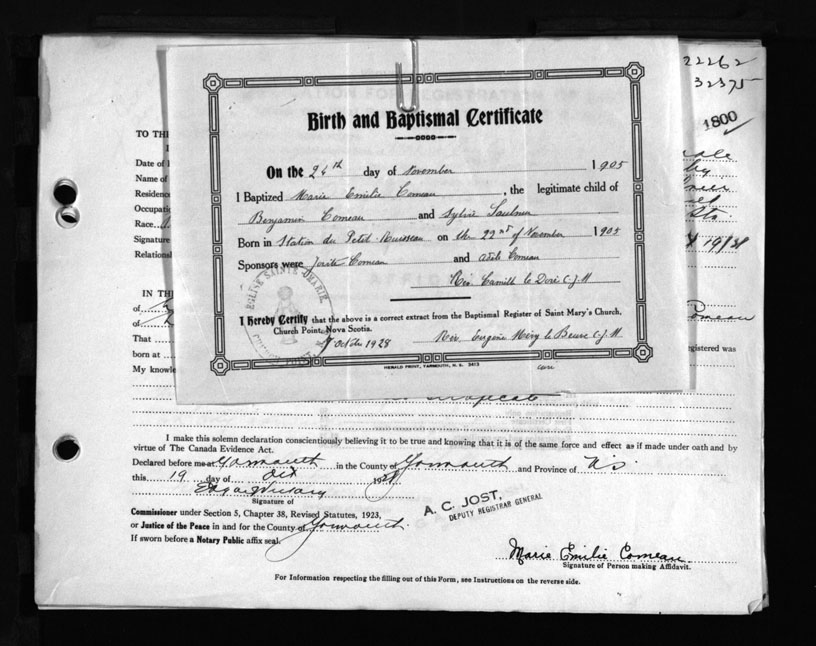 22262
32375
1800
Birth and Baptismal Certificate
On the 24th day of November 1905
I Baptized Marie Emilie Comeau, the legitimate child of
Benjamin Comeau and Sylvie Saulnier
Born in Station du Petit Ruisseau on the 22nd of November 1905
Sponsors were Comeau and Adele Comeau
Rev. Camille Le Doré C.J.M
I Hereby Certify that the above is a correct extract from the Baptismal Register of Saint Mary's Church,
Church Point, Nova Scotia.
7 Octobre 1928 Rev. Eugène C.J.M
HERALD PRINT, YARMOUTH, N. S. 3413
EGLISE SAINTE MARIE
TO THE
Date of
Name of
Residence
Occupation
Race
Signature
Relations
IN TH
of
of Comeau
That
born at registered was
My knowle
I make this solemn declaration conscientiously believing it to be true and knowing that it is of the same force and effect as if made under oath and by
virtue of The Canada Evidence Act.
Declared before me at Yarmouth in the County of Yarmouth and Province of N.S.
this 19 day of Oct 1928
Signature of
Commissioner under Section 5, Chapter 38, Revised Statutes, 1923,
or Justice of the Peace in and for the County of Yarmouth
If sworn before a Notary Public affix seal.
A. C. JOST,
DEPUTY REGISTRAR GENERAL
Marie Emilie Comeau
Signature of Person making Affidavit.
For Information respecting the filling out of this Form, see Instructions on the reverse side.